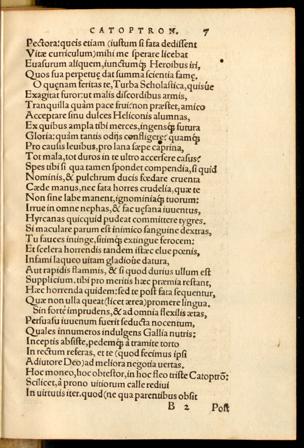 CATOPTRON. 7
Pectora: queis etiam (iustum si fata dedissent
Vitæ curriculum) mihi me sperare licebat
Euasurum aliquem, iunctumq́; Heroibus iri,
Quos sua perpetuę dat summa scientia famę.
O quęnam feritas te, Turba Scholastica, quisúe
Exagitat furor: ut malis discordibus armis,
Tranquilla quàm pace frui: non præstet, amico
Acceptare sinu dulces Heliconis alumnas,
Ex quibus ampla tibi merces, ingensq́; futura
Gloria: quàm tantis odijs confligere: quamq́;
Pro causis leuibus, pro lana sæpe caprina,
Tot mala, tot duros in te ultro accersere casus?
Spes tibi si qua tamen spondet compendia, si quid
Nominis, & pulchrum ducis fœdare cruenta
Cæde manus, nec fata horres crudelia, quæ te
Non sine labe manent, ignominiaq́; tuorum:
Irrue in omne nephas, & fac uesana iuuentus,
Hyrcanas quicquid pudeat committere tygres.
Si maculare parum est inimico sanguine dextras,
Tu fauces ininge, sitimq́; extingue ferocem:
Et scelera horrendis tandem istæc elue pœnis,
Infami laqueo uitam gladioúe datura,
Aut rapidis flammis, & si quod durius ullum est
Supplicium, tibi pro meritis hæc præmia restant,
Hæc horrenda quidem: sed te post fata sequentur,
Quæ non ulla queat (licet ærea) promere lingua.
Sin fortè imprudens, & ad omnia flexilis ætas,
Persuasu iuuenum fuerit seducta nocentum,
Quales innumeros indulgens Gallia nutris:
Inceptis absiste, pedemq́; à tramite torto
In rectum referas, et te (quod fecimus ipsi
Adiutore Deo) ad meliora negotia uertas.
Hoc moneo, hoc obtestor, in hoc fleo triste Catoptrō:
Scilicet, à prono uitiorum calle rediui
In uirtutis iter. quod (ne qua parentibus obsit
B 2 Post